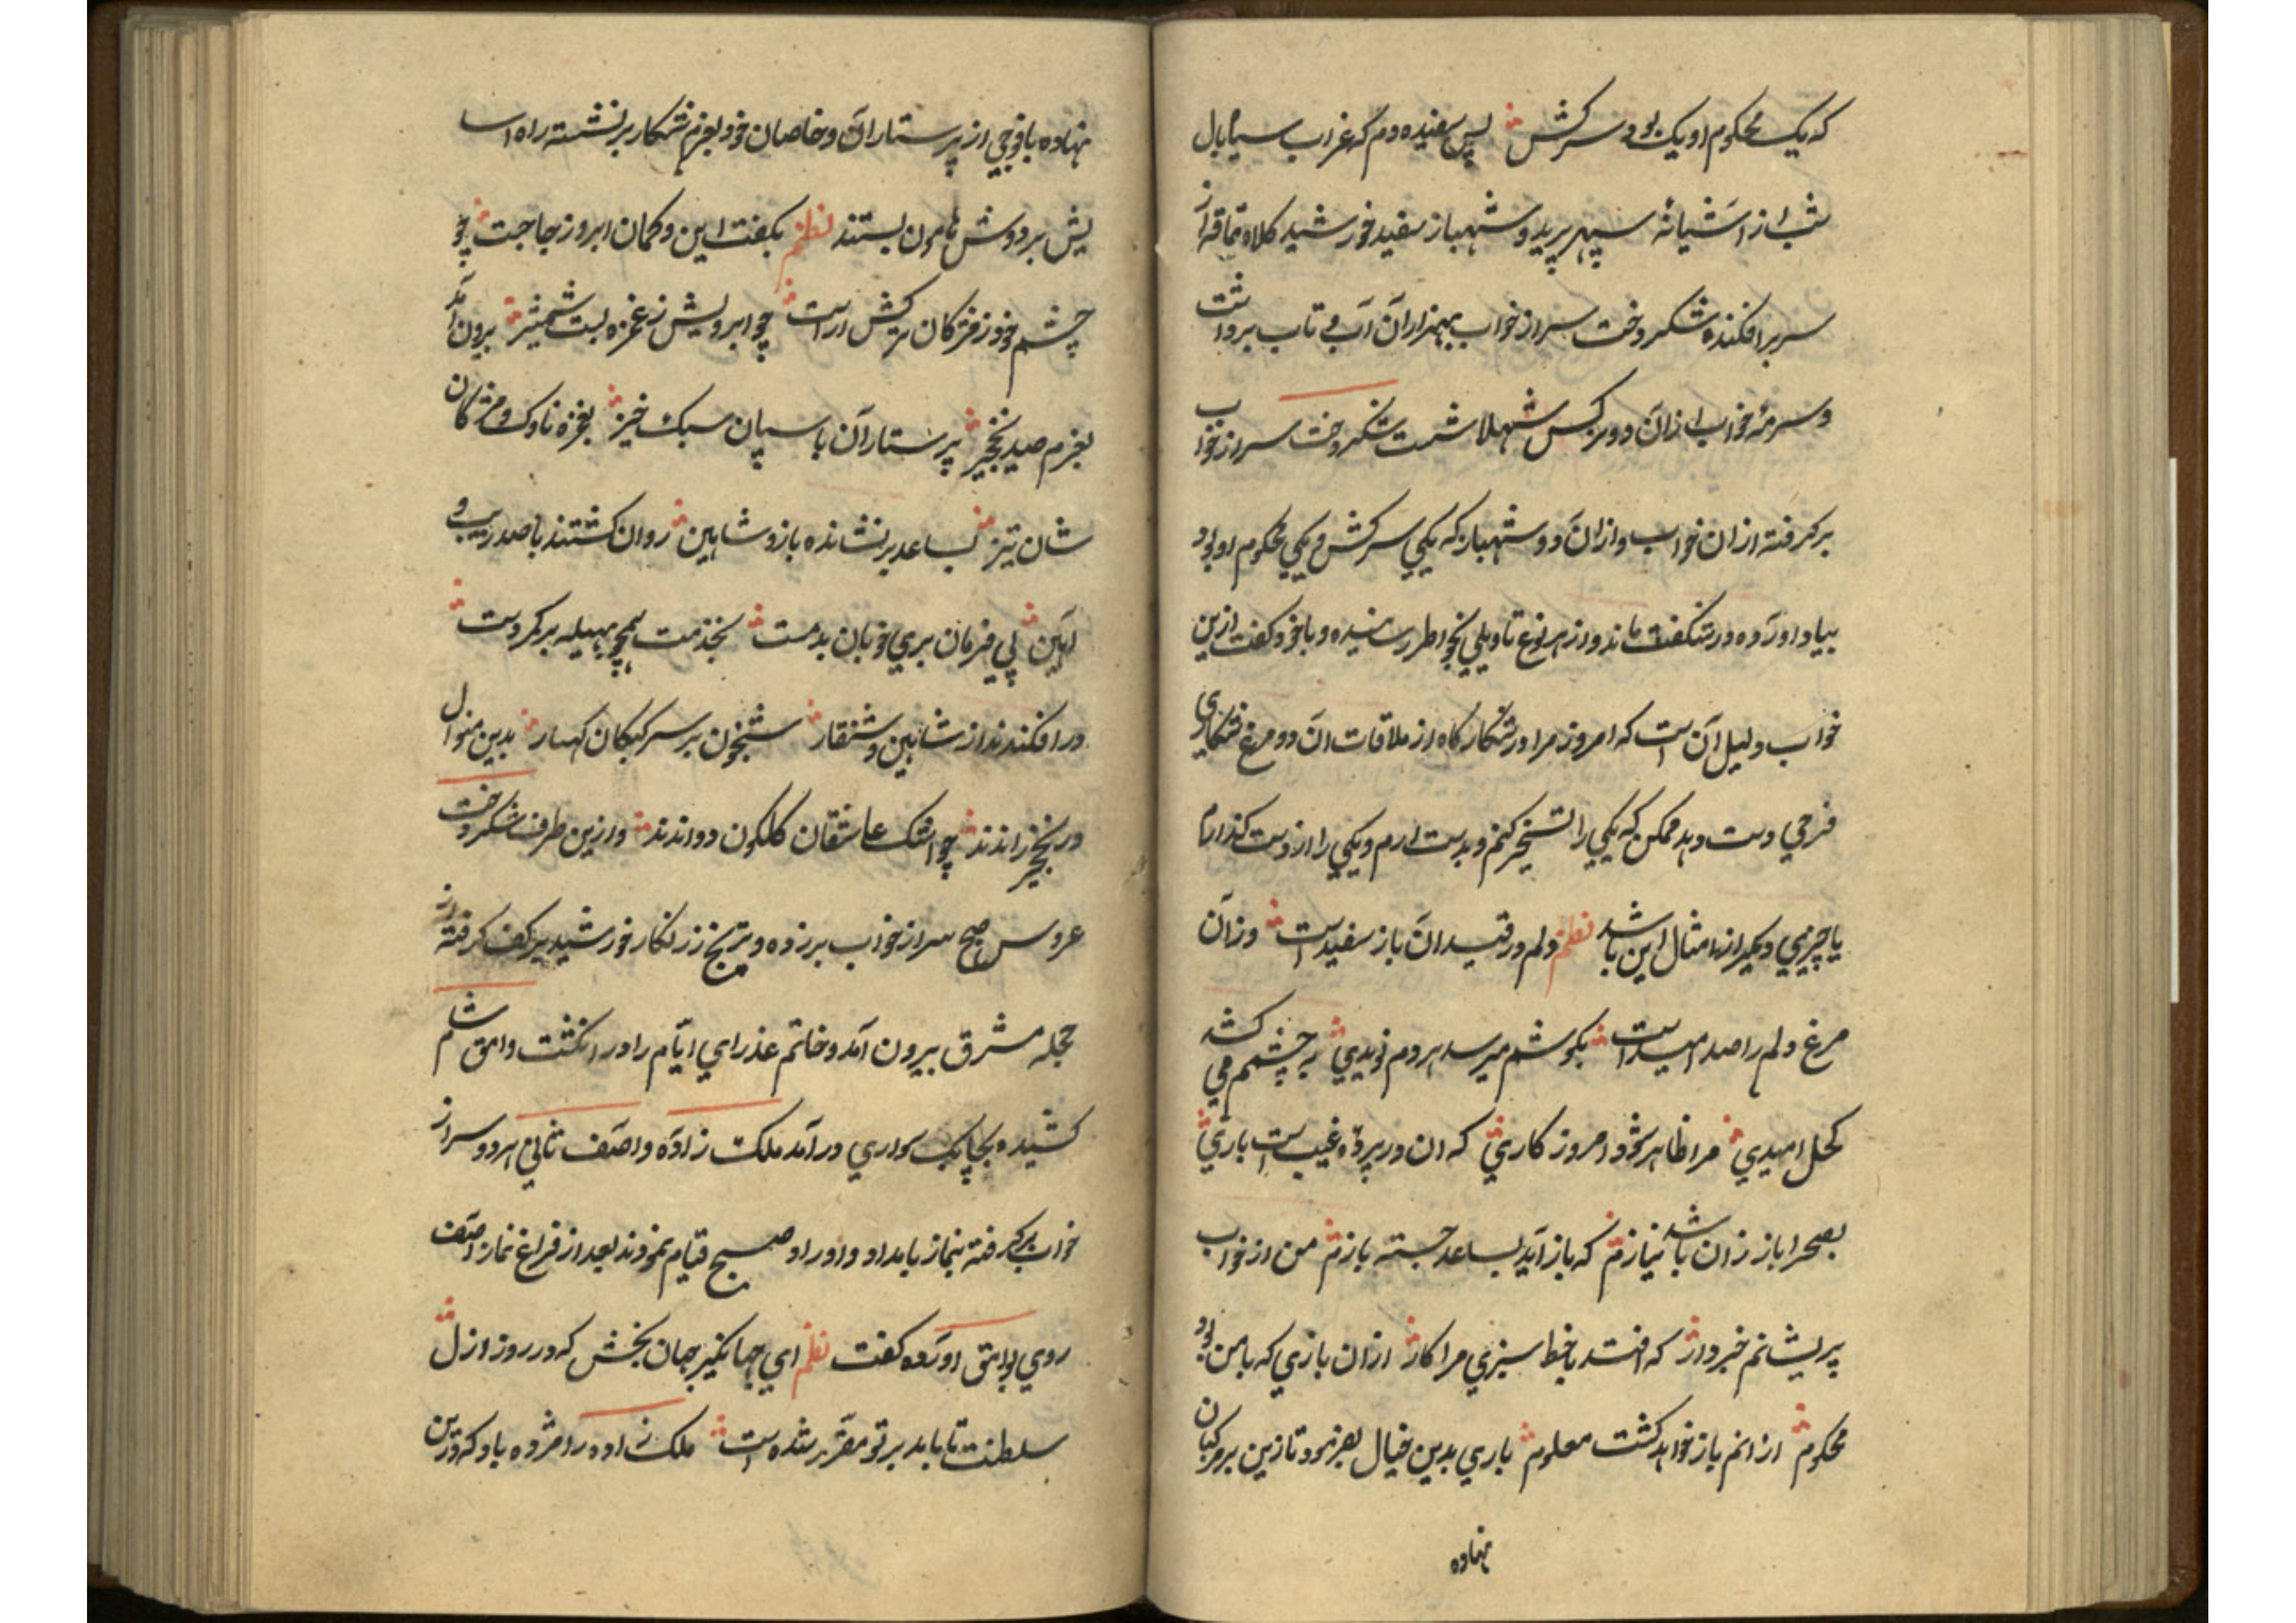 که یک محکوم او یک بود سرکش پس سفیده دم که غراب سیاه بال
شب از آشیانهٔ سپهر پرید و شهباز سفید خورشید کلاه قاقم از
سر برافکنده شکر وخت سر از خواب بهزاران آب و تاب برداشت
و سرمهٔ خواب از آن دو نرکس شهلا شست شکر وخت سر از خواب
برکرفته از ان خواب و از ان دو شهباز که یکی سرکش و یکی محکوم او بود
بیاد آورده در شکفت ماند و از هر نوع تاویلی بخواطر رسانیده و با خود کفت ازین
خواب دلیل آن است که امروز مرا در شکارکاه از ملاقات ان دو مرغ شکاری
فرحی دست دهد ممکن که یکی را تسخیر کنم و بدست ارم و یکی را از دست کذارم
یا چیزی دیکر از امثال این باشد نظم دلم در قید ان باز سفید است وز آن
مرغ دلم را صد امید است بکوشم میرسد هر دم نویدی به چشمم می کشد
کحل امیدی مرا ظاهر شود امروز کاری که ان در پردهٔ غیب است باری
بصحرا باز زان باشد نیازم که باز آید بساعد جسته بازم من از خواب
پریشانم خبردار که افتد با خط سبزی مرا کار از ان بازی که با من بود
محکوم از انم باز خواهد کشت معلوم باری بدین خیال بفرمود تا زین بر مرکبان
نهاده
نهاده با فوجی از پرستاران و خاصان خود بعزم شکار برنشسته راه اسا
یش بر دوش هامون بستند نظم بکفت این و کمان ابرو ز جا جست چو
چشم خود ز مژکان ترکش اراست چو ابرویش ز غمزه بست شمشیر برون آمد
بعزم صید نخجیر پرستاران با سپان سبک خیز بغمزه ناوک و مژکان
شان تیز بساعد برنشانده باز و شاهین روان کشتند با صد زیب و
آیین پی فرمان بری خوبان بدمست بخذمت همچو بهیله بر کمر دست
در افکندند از شاهین و شنقار شبخون بر سر کبکان کهسار بدین منوال
در نخجیر راندند چو اشک عاشقان کلکون دواندند و ازین طرف شکر وخت
عروس صبح سر از خواب برزده و ترنج زرنکار خورشید بر کف کرفته از
حجله مشرق بیرون آمد و خاتم عذرای ایّام را در انکشت وامق شام
کشیده بچابک سواری درآمد ملک زاده و اصف ثانی هر دو سر از
خواب برکرفته بنماز بامداد و اوراد صبح قیام نمودند بعد از فراغ نماز اصف
روی بوامق آورده کفت نظم ای جهانکیر جهان بخش که در روز ازل
سلطنت تا بابد بر تو مقرّر شده است ملک زاده را مژده باد که درین